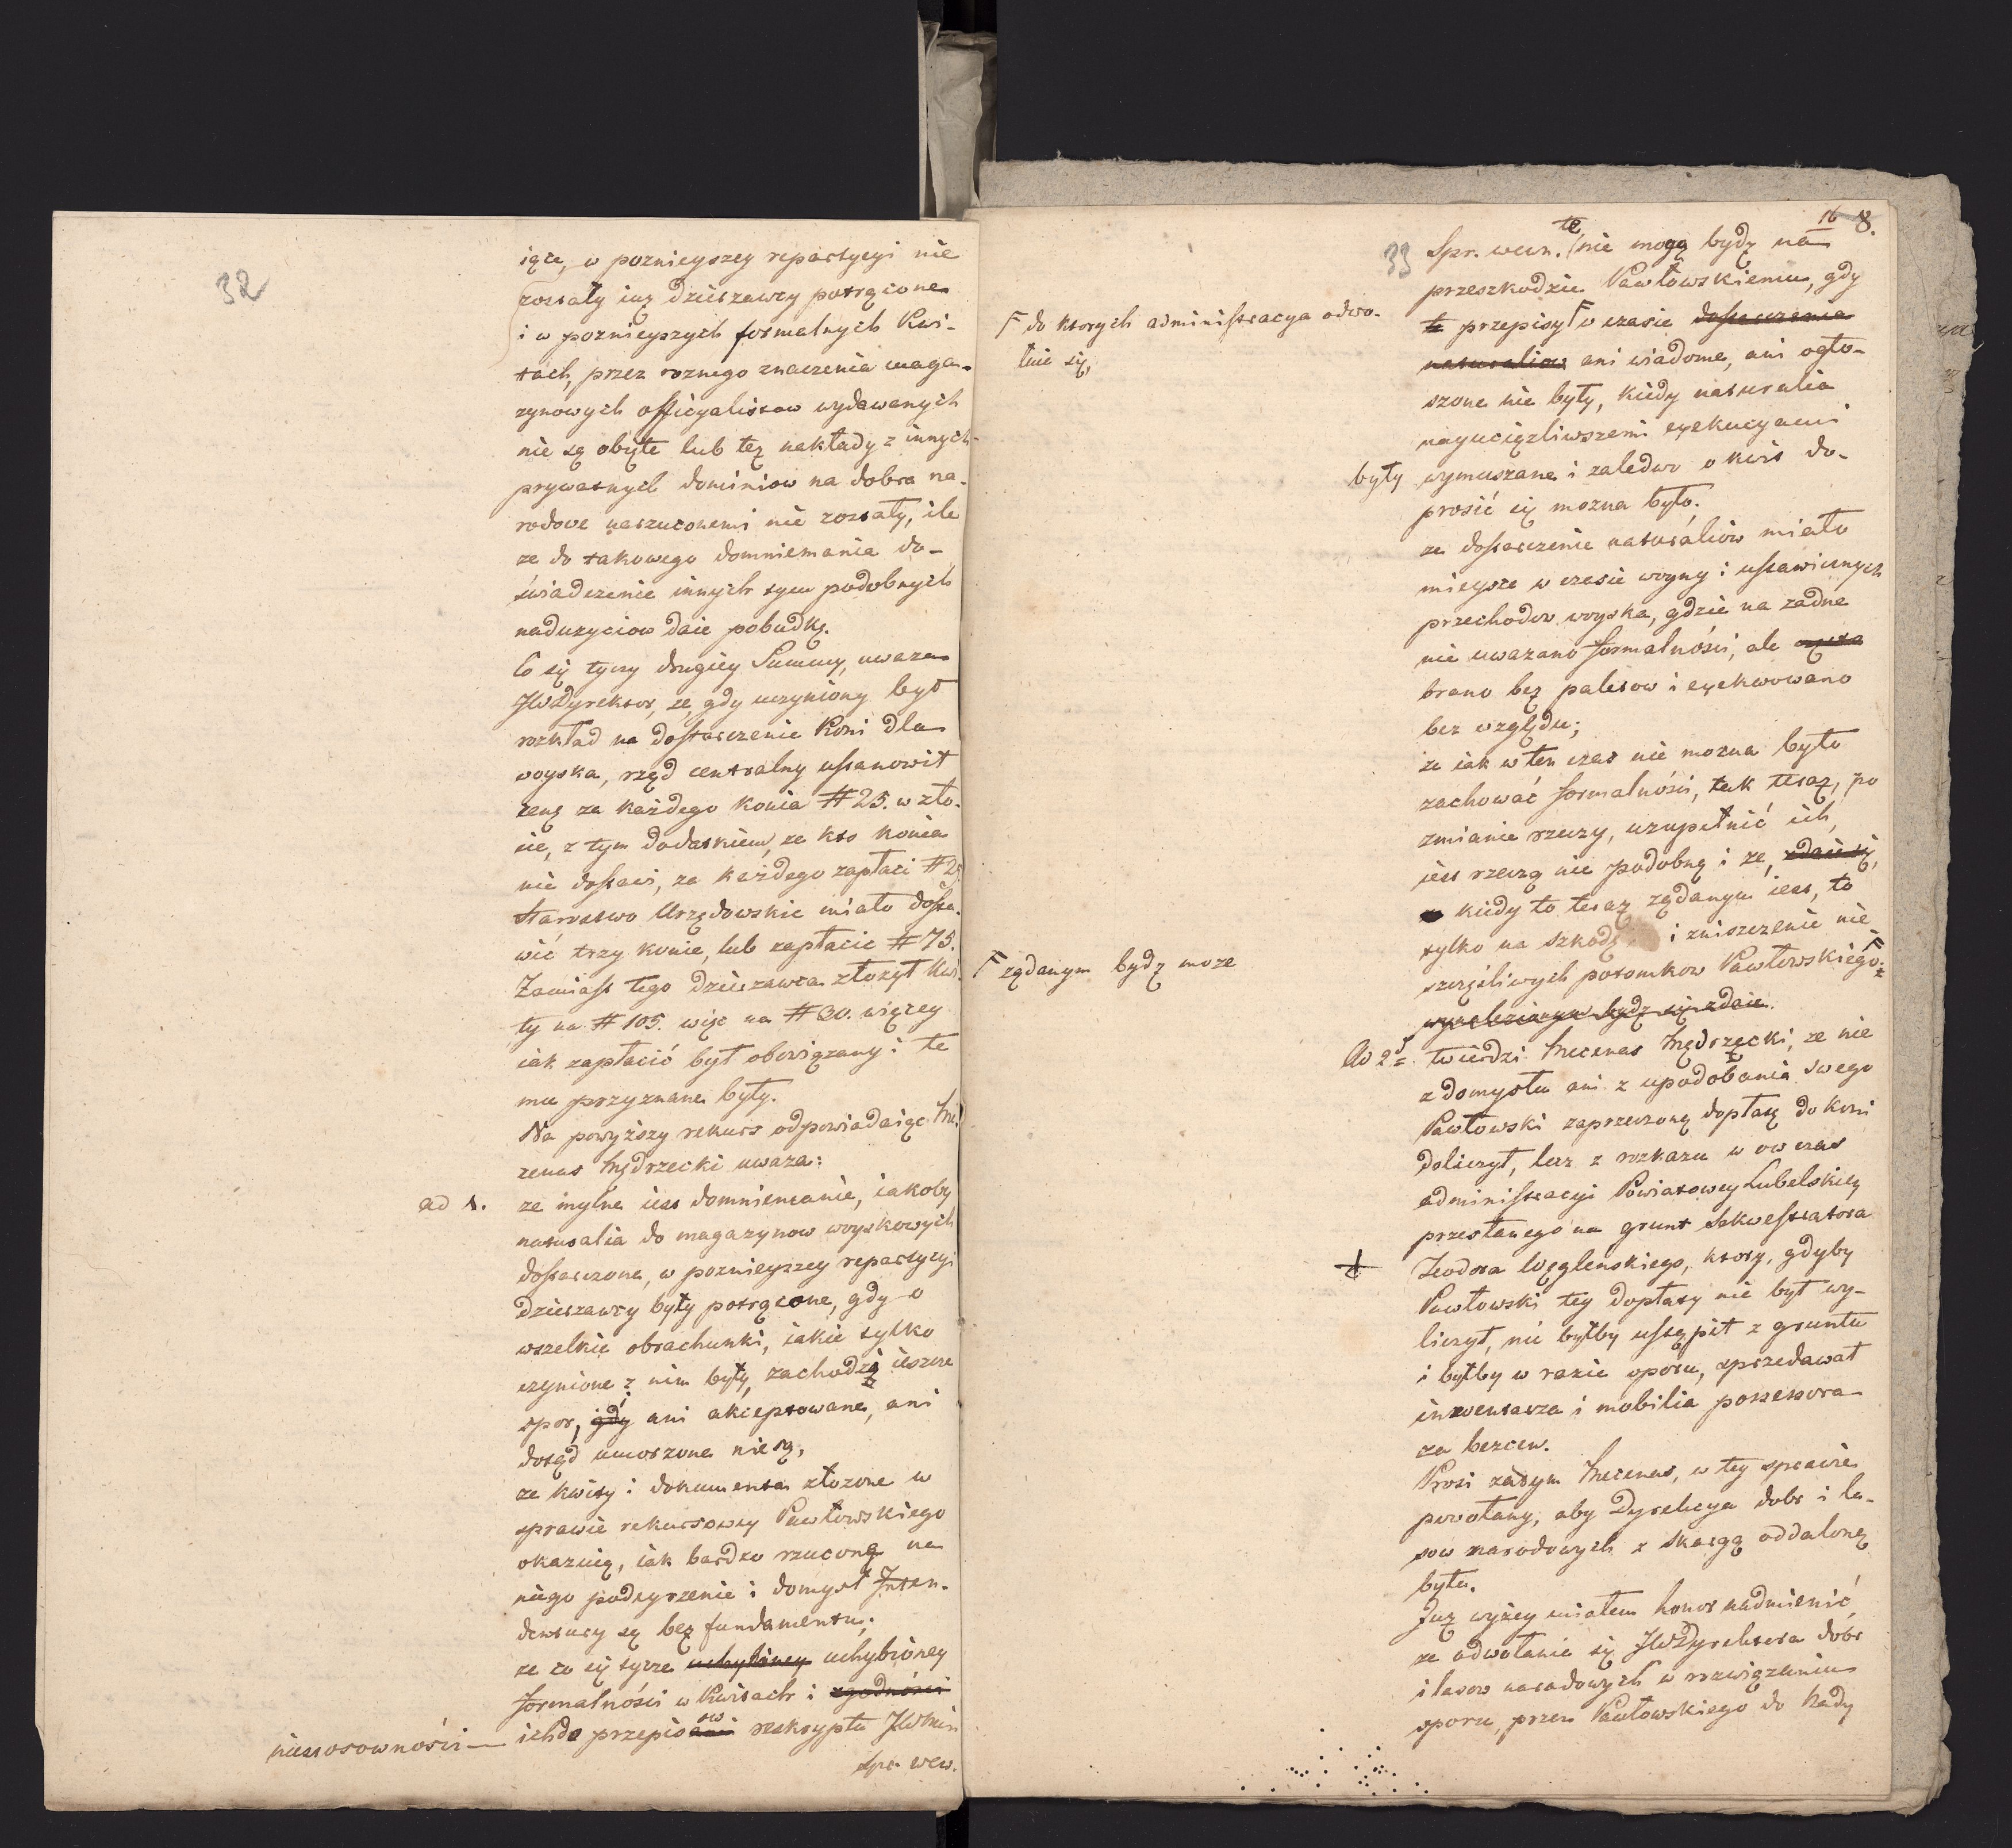 32
iące, w poznieyszey repartycyi nie
zostały iuz dzierzawcy potrącone
i w poznieyszych formalnych Kwi-
tach, przez roznego znaczenia maga-
zynowych officyalistow wydawanych
nie są obięte lub tez nakłady z innych
prywatnych dominiow na dobra na-
rodowe narzuconemi nie zostały, ile
ze do takowego domniemania do-
świadczenie innych tym podobnych
naduzyciow daie pobudkę.
Co się tyczy drugiey Summy, uwaza
JWDyrektor, ze, gdy uczyniony był
rozkład na dostarczenie Koni dla
woyska, rząd centralny ustanowił
cenę za każdego konia # 25. w zło-
cie, z tym dodatkiem, ze kto konia
nie dostawi, za każdego zapłaci # 25
Starostwo Urzędowskie miało dosta-
wić trzy konie, lub zapłacic # 75.
Zamiast tego dzierzawca złozył Kwi-
ty na # 105. więc na # 30. więcey
iak zapłacić był obowiązany i te
mu przyznane były.
Na powyższy rekurs odpowiadaiąc Me-
cenas Mędrzecki uwaza:
ad 1. ze mylne iest domniemanie, iakoby
naturalia do magazynow woyskowych
dostarczone, w poznieyszey repartycyi
dzierzawcy były potrącone, gdy o
wszelkie obrachunki, iakie tylko
czynione z nim były, zachodzą ieszcze
spor, gdy i ani akceptowane, ani
dotąd umorzone nie są,
ze kwity i dokumenta złozone w
sprawie rekursowey Pawłowskiego
okazuią, iak bardzo rzucone na
niego podeyrzenie i domysł Inten-
dentury są bez fundamentu;
ze co się tycze uchybioney uchybioney
formalności w Kwitach i zgodności
niestosowności ich do przepisow reskryptu JWMin
Spr. wew.
16 8.
33 Spr. wewn. te nie mogą bydz na
przeszkodzie Pawłowskiemu, gdy
te przepisy Γ w czasie dostarczenia
Γ do ktorych administracya odwo-
łuie się,
naturaliow ani wiadome, ani ogło-
szone nie były, kiedy naturalia
nayuciązliwszemi exekucyami
były wymuszane i zaledwo o kwit do-
prosić się mozna było;
ze dostarczenie naturaliow miało
mieysce w czasie woyny i ustawicznych
przechodow woyska, gdzie na zadne
nie uwazano formalności, ale
brano bez paletow i exekwowano
bez względu;
ze iak w ten czas nie mozna było
zachować formalności, tak teraz, po
zmianie rzeczy, uzupełnić ich,
iest rzeczą nie podobną i ze, zdaie się,
kiedy to teraz ządanym iest, to
tylko na szkodę i zniszczenie nie-
szczęśliwych potomkow Pawłowskiego Γ
Γ ządanym bydz moze
wynalezionym bydz się zdaie.
Ad 2. twierdzi Mecenas Mędrzecki, ze nie
z domysłu ani z upodobania swego
Pawłowski zaprzeczoną dopłatę do koni
doliczył, lecz z rozkazu w ow czas
administracyi Powiatowey Lubelskiey
przesłanego na grunt Sekwestratora
Teodora Węglenskiego, ktory, gdyby
Pawłowski tey dopłaty nie był wy-
liczył, nie byłby ustąpił z gruntu
i byłby w razie oporu, sprzedawał
inwentarza i mobilia possessora
za bezcen.
Prosi zatym Mecenas, w tey sprawie
powołany, aby Dyrekcya dobr i la-
sow narodowych z skargą oddaloną
była.
Juz wyżey miałem honor nadmienić,
ze odwołanie się JWDyrektora dobr
i lasow narodowych w rozwiązaniu
sporu, przez Pawłowskiego do Rady